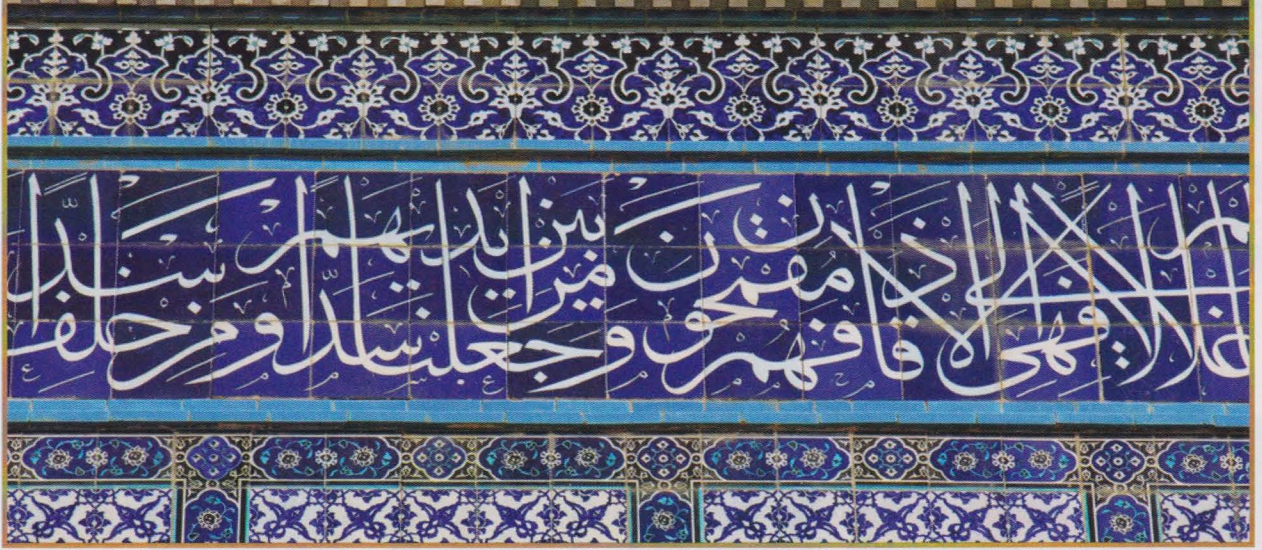 أغلالا فهي إلى الأذقان فهم مقمحون وجعلنا من بين أيديهم سدا ومن خلف سدا